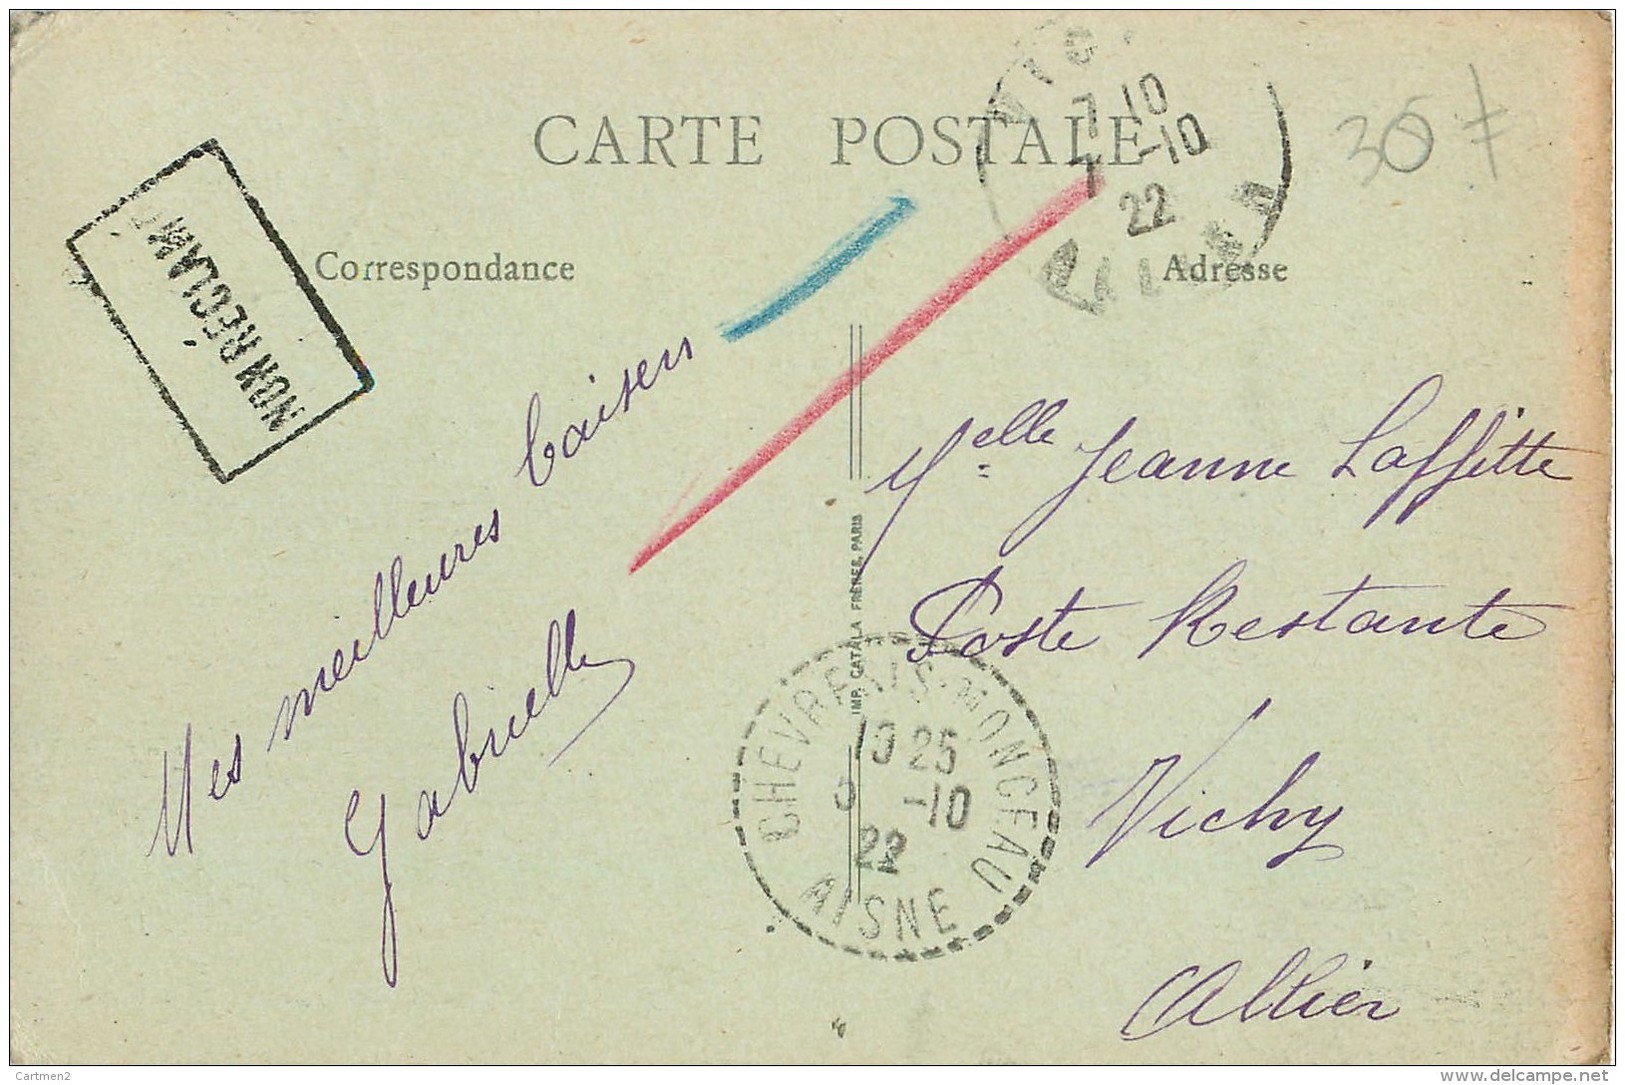 CARTE POSTALE
Correspondance
Adresse
NON RÉCLAMÉ
7 10
7 -10
22
ALLIER
30 F
Mes meilleures baisers
Gabrielle
IMP. CATALA FRÈRES, PARIS
Melle Jeanne Laffitte
Poste Restante
Vichy
Allier
CHEVRESIS-MONCEAU
10 25
5 -10
22
AISNE
Cartmen2
www.delcampe.net